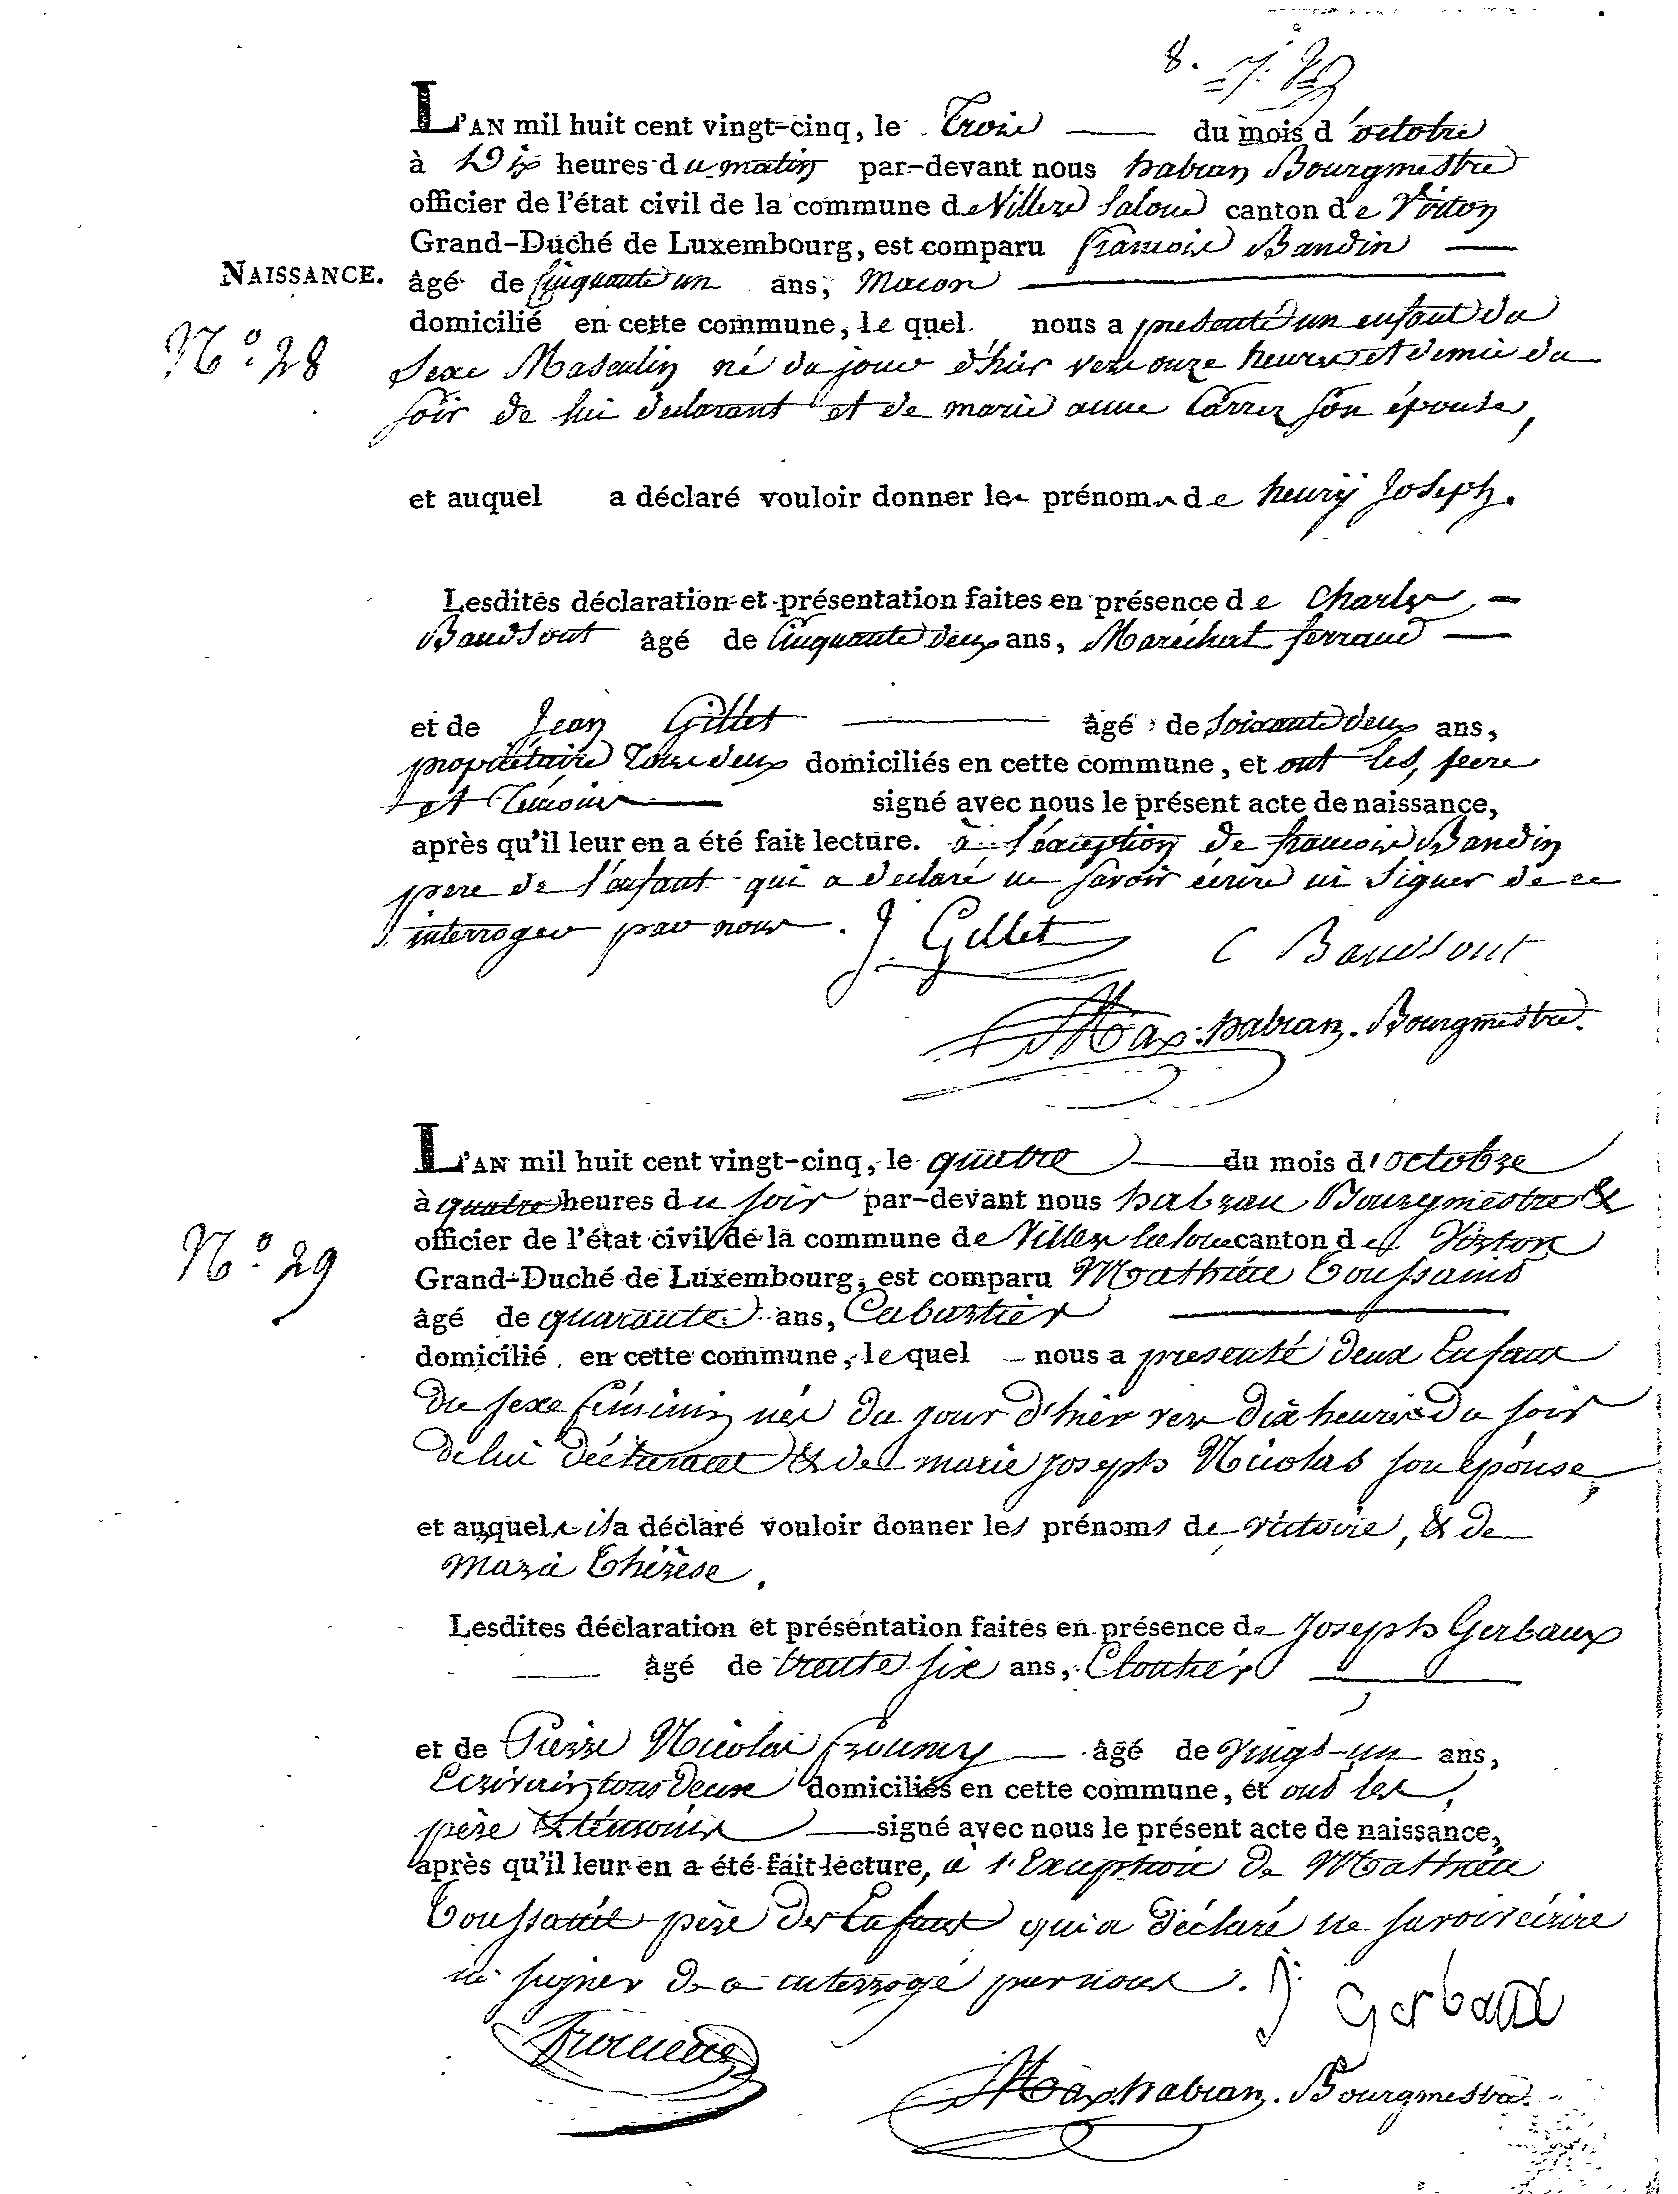 8.
L'AN mil huit cent vingt-cinq, le Trois du mois d'octobre
à Dix heures du matin par-devant nous habran Bourgmestre
officier de l'état civil de la commune de Villers Laloue canton de Virton
Grand-Duché de Luxembourg, est comparu francois Baudin
NAISSANCE.
âgé de Cinquante un ans, Macon
domicilié en cette commune, le quel nous a presenté un enfant du
N.º 28
Sexe Masculin né du jour d'hier vers onze heures et demie du
soir de lui declarant et de marie anne Carrez son épouse,
et auquel a déclaré vouloir donner les prénoms de henrÿ Joseph.
Lesdites déclaration et présentation faites en présence de Charles
Baudsout âgé de Cinquante deux ans, Maréchal ferrand
et de Jean Gillet âgé de Soixante deux ans,
propriétaire Tous deux domiciliés en cette commune, et ont les, pere
et Témoins signé avec nous le présent acte de naissance,
après qu'il leur en a été fait lecture. à l'éxception de francois Baudin
pere de l'enfant qui a declaré ne savoir écrire ni signer de ce
interrogeo par nous. J. Gillet C Baudsout
Max. habran. Bourgmestre.
L'AN mil huit cent vingt-cinq, le quatre du mois d'octobre
à quatre heures du soir par-devant nous habran Bourgmestre &
N.º 29
officier de l'état civil de la commune de Villers laloue canton de Virton
Grand-Duché de Luxembourg, est comparu Mathieu Toussaint
âgé de quarante ans, Cabartier
domicilié en cette commune, le quel nous a presenté deux Enfans
du sexe féminin nés du jour d'hier vers dix heures du soir
de lui déclarant & de marie joseph Nicolas son épouse,
et auquels il a déclaré vouloir donner les prénoms de victoire, & de
Marie Thérèse.
Lesdites déclaration et présentation faites en présence de Joseph Gerbaux
âgé de trente six ans, Cloutier
et de Pierre Nicolas âgé de vingt-un ans,
Ecrivain tous deux domiciliés en cette commune, et ont les,
père & témoins signé avec nous le présent acte de naissance,
après qu'il leur en a été fait lecture, à l'Exception de Mathieu
Toussaint père des Enfans qui a déclaré ne savoir écrire
ni signer de ce interrogé par nous. J. Gerbaux
Max habran. Bourgmestre.